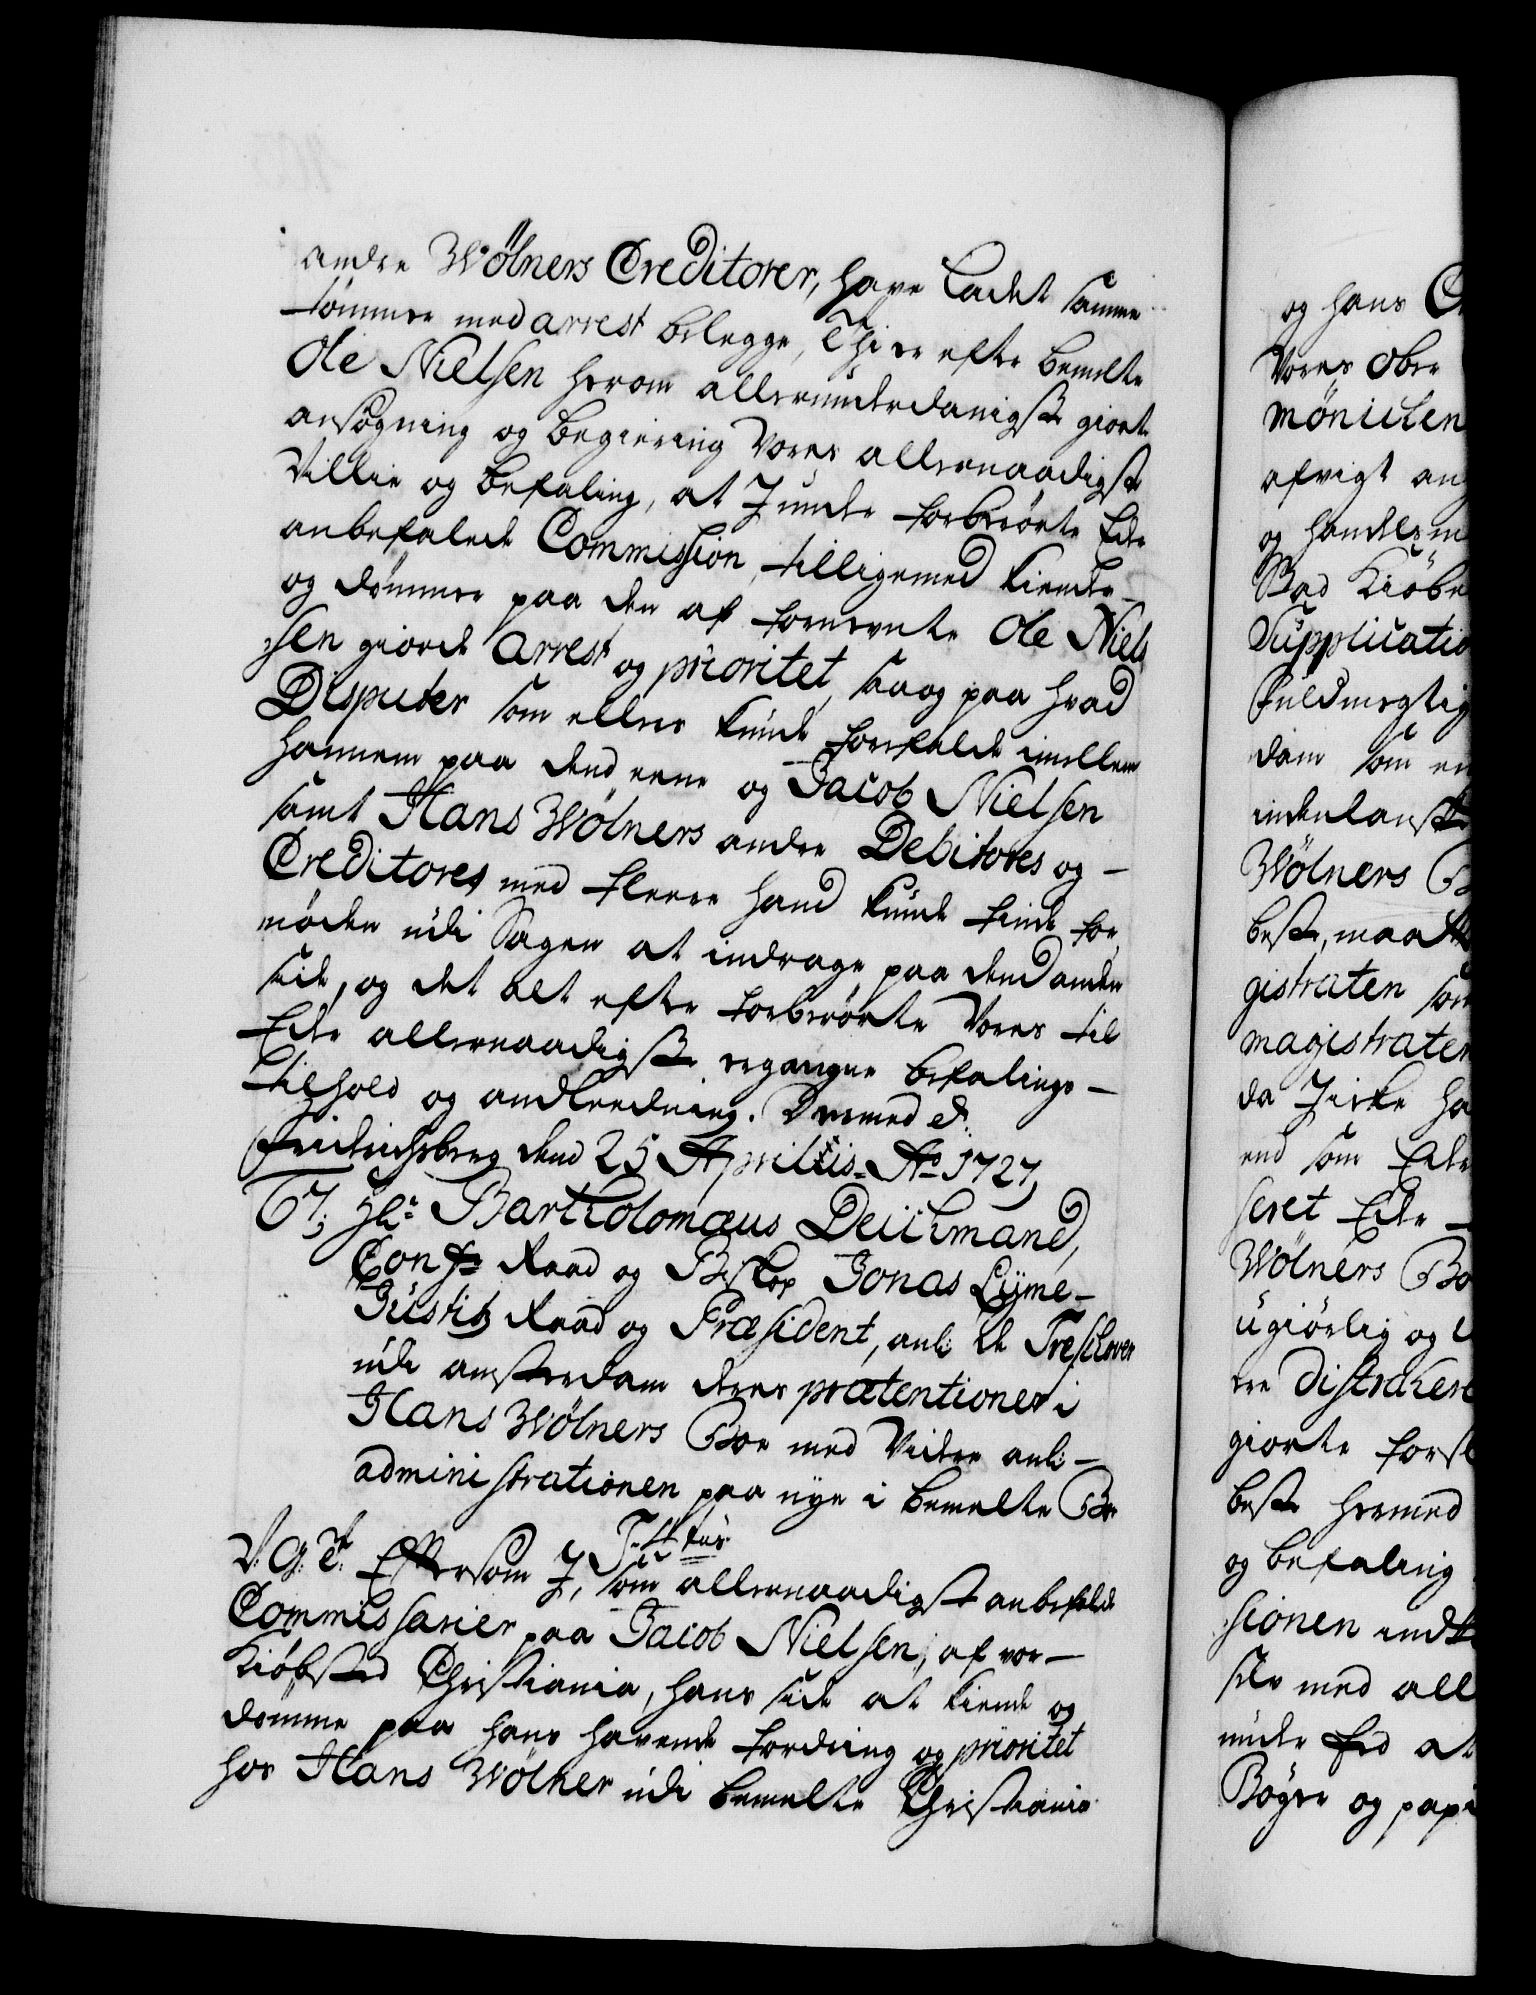 andre Wölners Creditorer, have Ladet samme
tømmer med arrest belegge, Thi er efter bemelte
Ole Nielsen herom allerunderdanigst giort
ansøgning og begiering Vores allernaadigste
Villie og befaling, at I under forberørte Eder
anbefalede Commission, tilligemed kiender
og dømmer paa den af fornevnte Ole Niel-
sen giorde arrest og prioritet, saa og paa hvad
Disputer som ellers kunde forefalde imellem
hannem paa dend eene og Jacob Nielsen
samt Hans Wölners andre Debitores og -
Creditores med fleere hand kunde finde for-
nøden udi Sagen at inddrage paa dend anden
side, og det alt efter forberørte Vores til
Eder allernaadigste ergangne befalings -
tilhold og andleedning. Dermed etc.
Friderichsberg dend 25 Aprilis Ao 1727,
67, Hr. Bartholomæus Deichmand,
Conf. Raad og Biskop Jonas Lyme -
Justitz Raad og Præsident, anl. de Treschover
udi amsterdam deres prætentioner i
Hans Wölners Boe med Videre anl. -
administrationen paa nye i bemelte Boe
Tittus
V. G. T. Eftersom I, som allernaadigst anbefalede
Commissarier paa Jacob Nielsen, af vor -
Kiøbsted Christiania, hans side at kiende og
dømme paa hans havende fordring og prioritet
hos Hans Wölner udi bemelte Christiania
og hans
Vores Ober
afvigt
og handels
Bad Kiøbe
Supplicatio
fuldmegtig
dam som
indenlansk
Wölners
beste, maatte
gistraten
magistraten
da Jicke
end som Eder
seret Eder
Wölners Bo
ugiørlig og
distrahere
giorte forsl
beste hermed
og befaling
sionen
selv med all
under Eed at
Bøger og papi